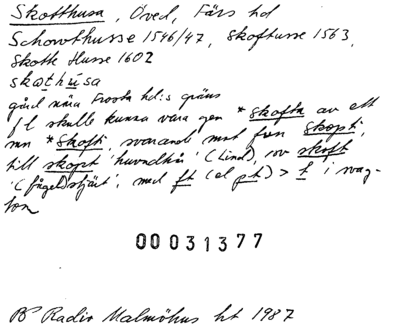 Skotthusa, Öved, Färs hd
Schowthusse 1546/47, Skoftusse 1563,
Skotte Husse 1602
skathúsa
gård nära Frosta hd:s gräns
fl skulle kunna vara gen *Skofta av ett
mn *Skofti, svarande mot fvn Skopti,
till skopt 'huvudhår' (Lind), sv skoft
'(fågel)stjärt', med ft (el pt) > t i svag-
ton
00031377
PB Radio Malmöhus ht 1987